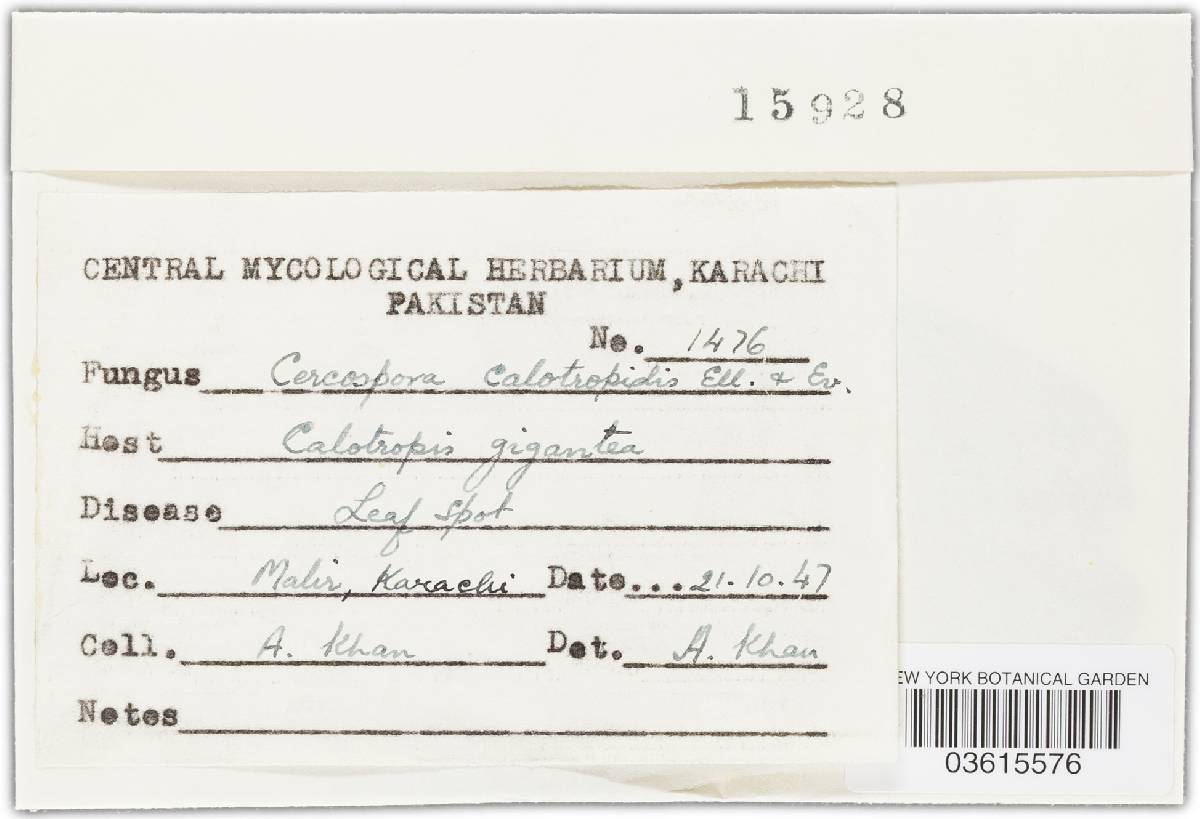 15928
CENTRAL MYCOLOGICAL HERBARIUM, KARACHI
PAKISTAN
No. 1476
Fungus Cercospora calotropidis Ell. & Ev.
Host Calotropis gigantea
Disease Leaf spot
Loc. Malir, Karachi Date...21.10.47
Coll. A. Khan Det. A. Khan
Notes
EW YORK BOTANICAL GARDEN
03615576